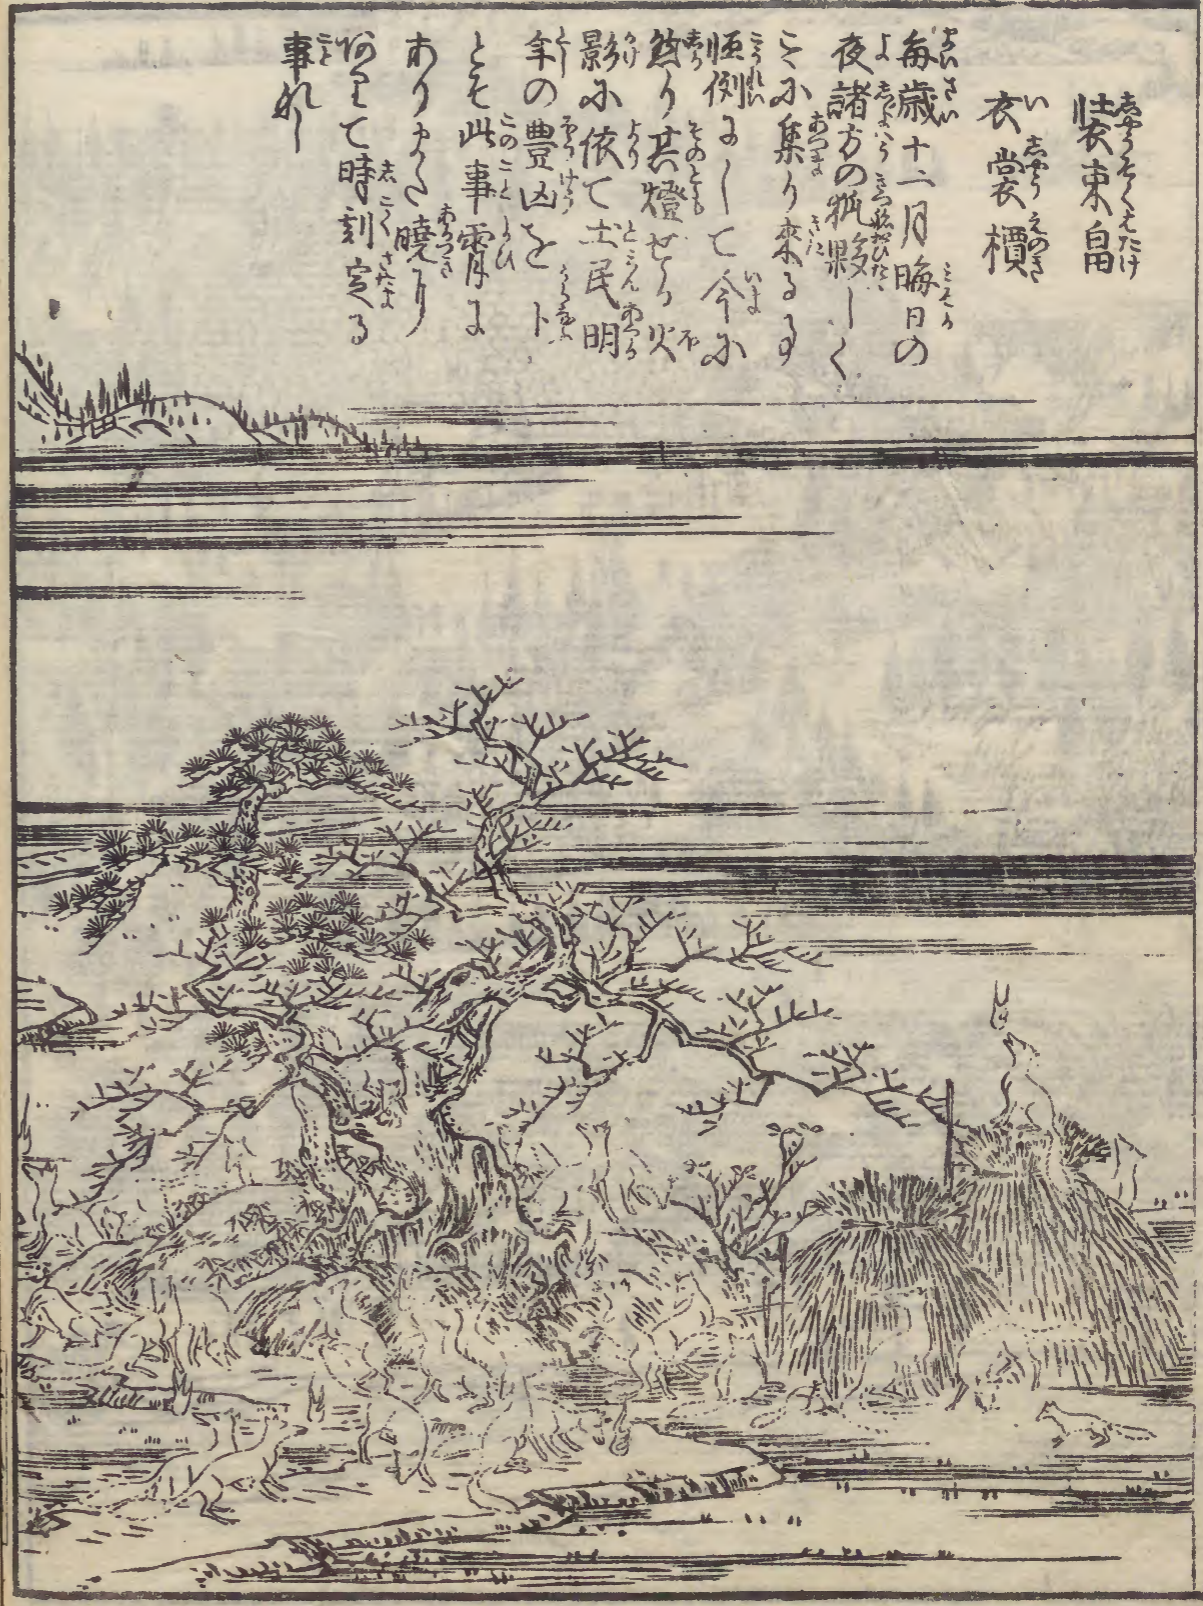 装束畠
衣裳榎
毎歳十二月晦日の
夜諸方の狐夥しく
こゝに集り来る事
恒例にして今に
然り其燈せる火
影に依て土民明
年の豊凶を卜
とぞ此事宵に
あり又暁に
ありて時刻定る
事なし